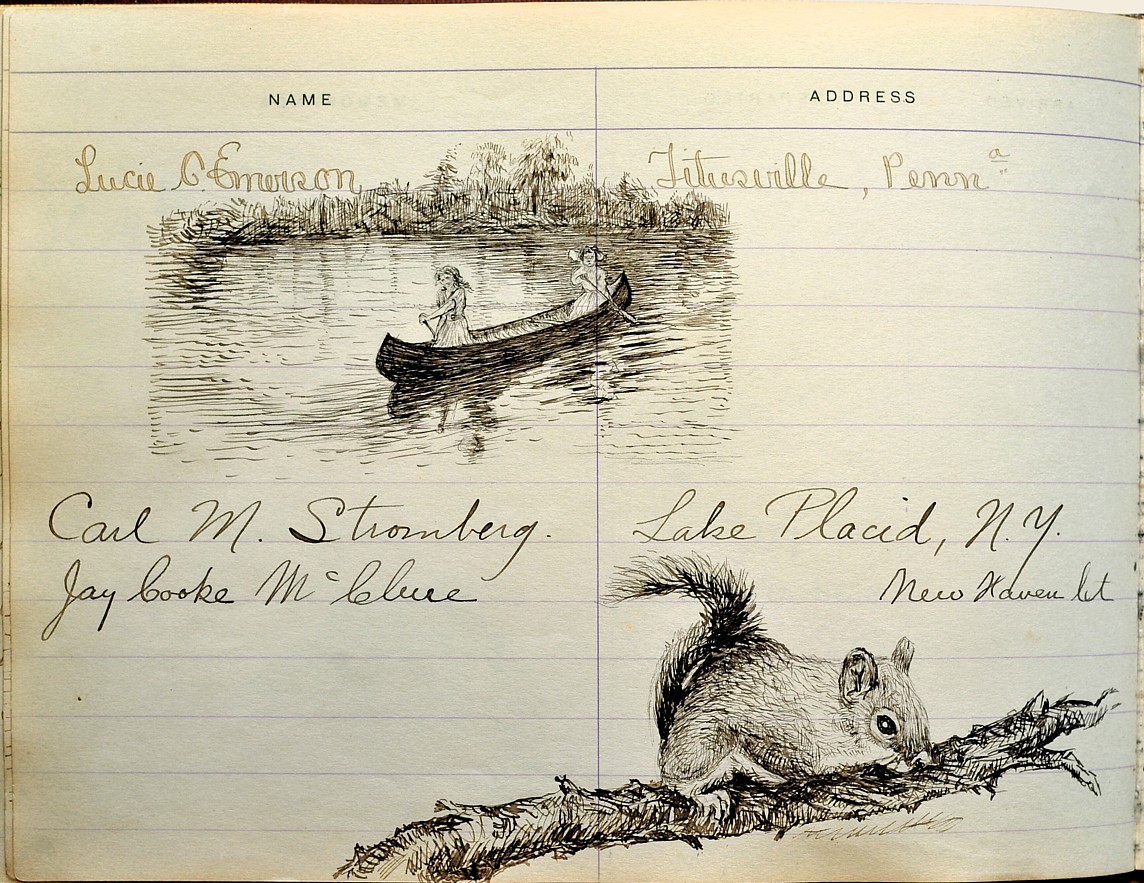 NAME ADDRESS
Lucie C. Emerson Titusville, Penna
Carl M. Stromberg. Lake Placid, N.Y.
Jay Cooke McClure New Haven Ct